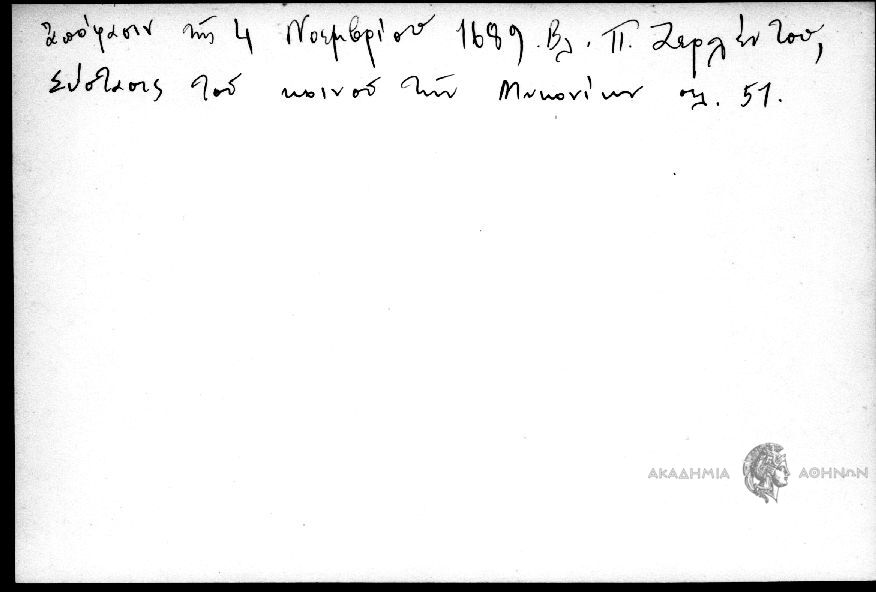 ἀπόφασιν τῆς 4 Νοεμβρίου 1689. Βλ. Π. Ζερλέντου,
Σύστασις τοῦ κοινοῦ τῶν Μυκονίων σελ. 51.
ΑΚΑΔΗΜΙΑ ΑΘΗΝΩΝ